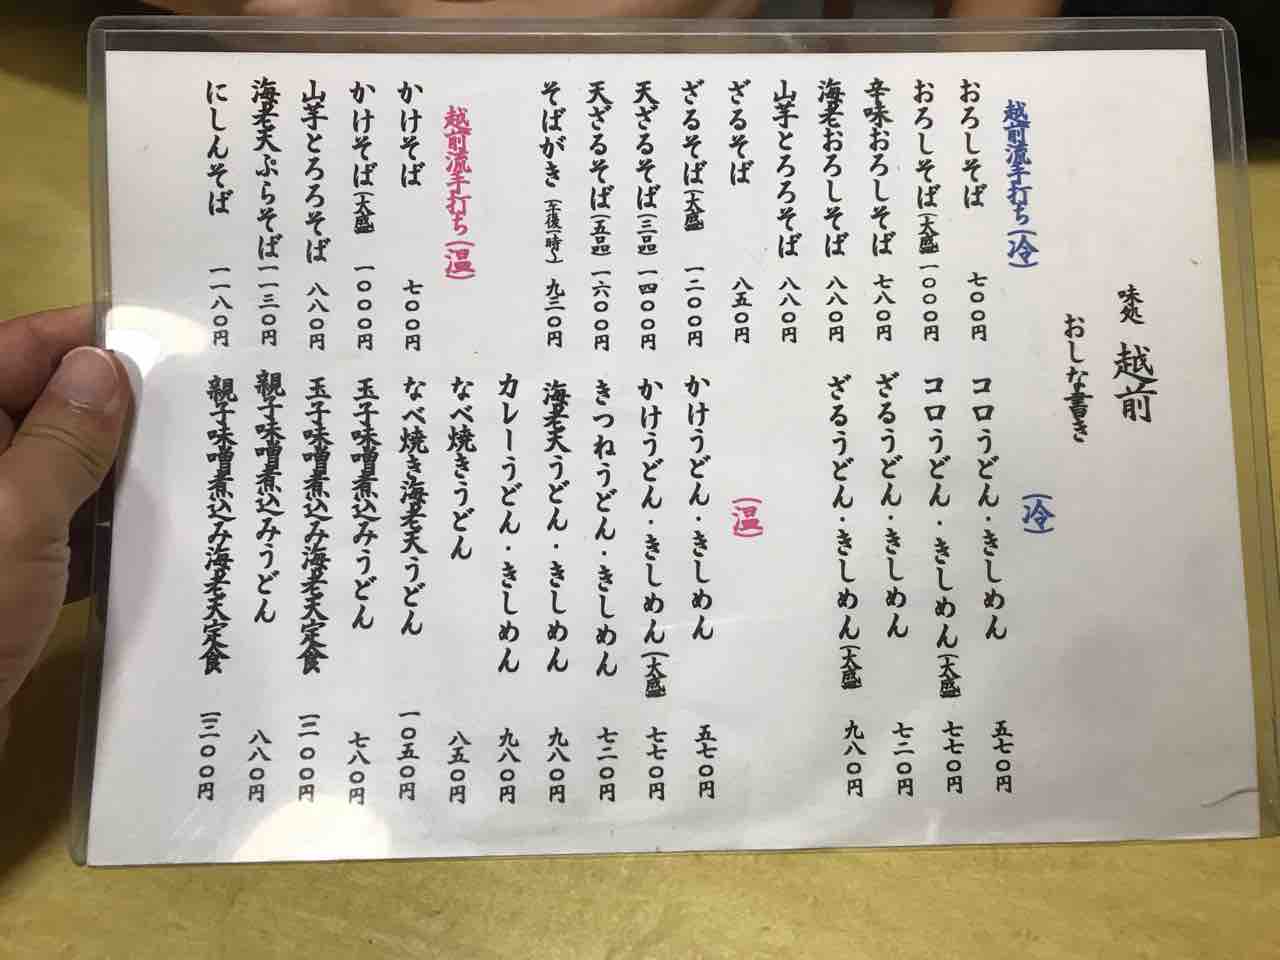 味処 越前
おしな書き
越前流手打ち(冷)
おろしそば 七〇〇円
おろしそば(大盛) 一〇〇〇円
辛味おろしそば 七八〇円
海老おろしそば 八八〇円
山芋とろろそば 八八〇円
ざるそば 八五〇円
ざるそば(大盛) 一二〇〇円
天ざるそば(三品) 一四〇〇円
天ざるそば(五品) 一六〇〇円
そばがき(午後一時〜) 九三〇円
越前流手打ち(温)
かけそば 七〇〇円
かけそば(大盛) 一〇〇〇円
山芋とろろそば 八八〇円
海老天ぷらそば 一一三〇円
にしんそば 一一八〇円
(冷)
コロうどん・きしめん 五七〇円
コロうどん・きしめん(大盛) 七七〇円
ざるうどん・きしめん 七二〇円
ざるうどん・きしめん(大盛) 九八〇円
(温)
かけうどん・きしめん 五七〇円
かけうどん・きしめん(大盛) 七七〇円
きつねうどん・きしめん 七二〇円
海老天うどん・きしめん 九八〇円
カレーうどん・きしめん 九八〇円
なべ焼きうどん 八五〇円
なべ焼き海老天うどん 一〇五〇円
玉子味噌煮込みうどん 七八〇円
玉子味噌煮込み海老天定食 一二〇〇円
親子味噌煮込みうどん 八八〇円
親子味噌煮込み海老天定食 一三〇〇円